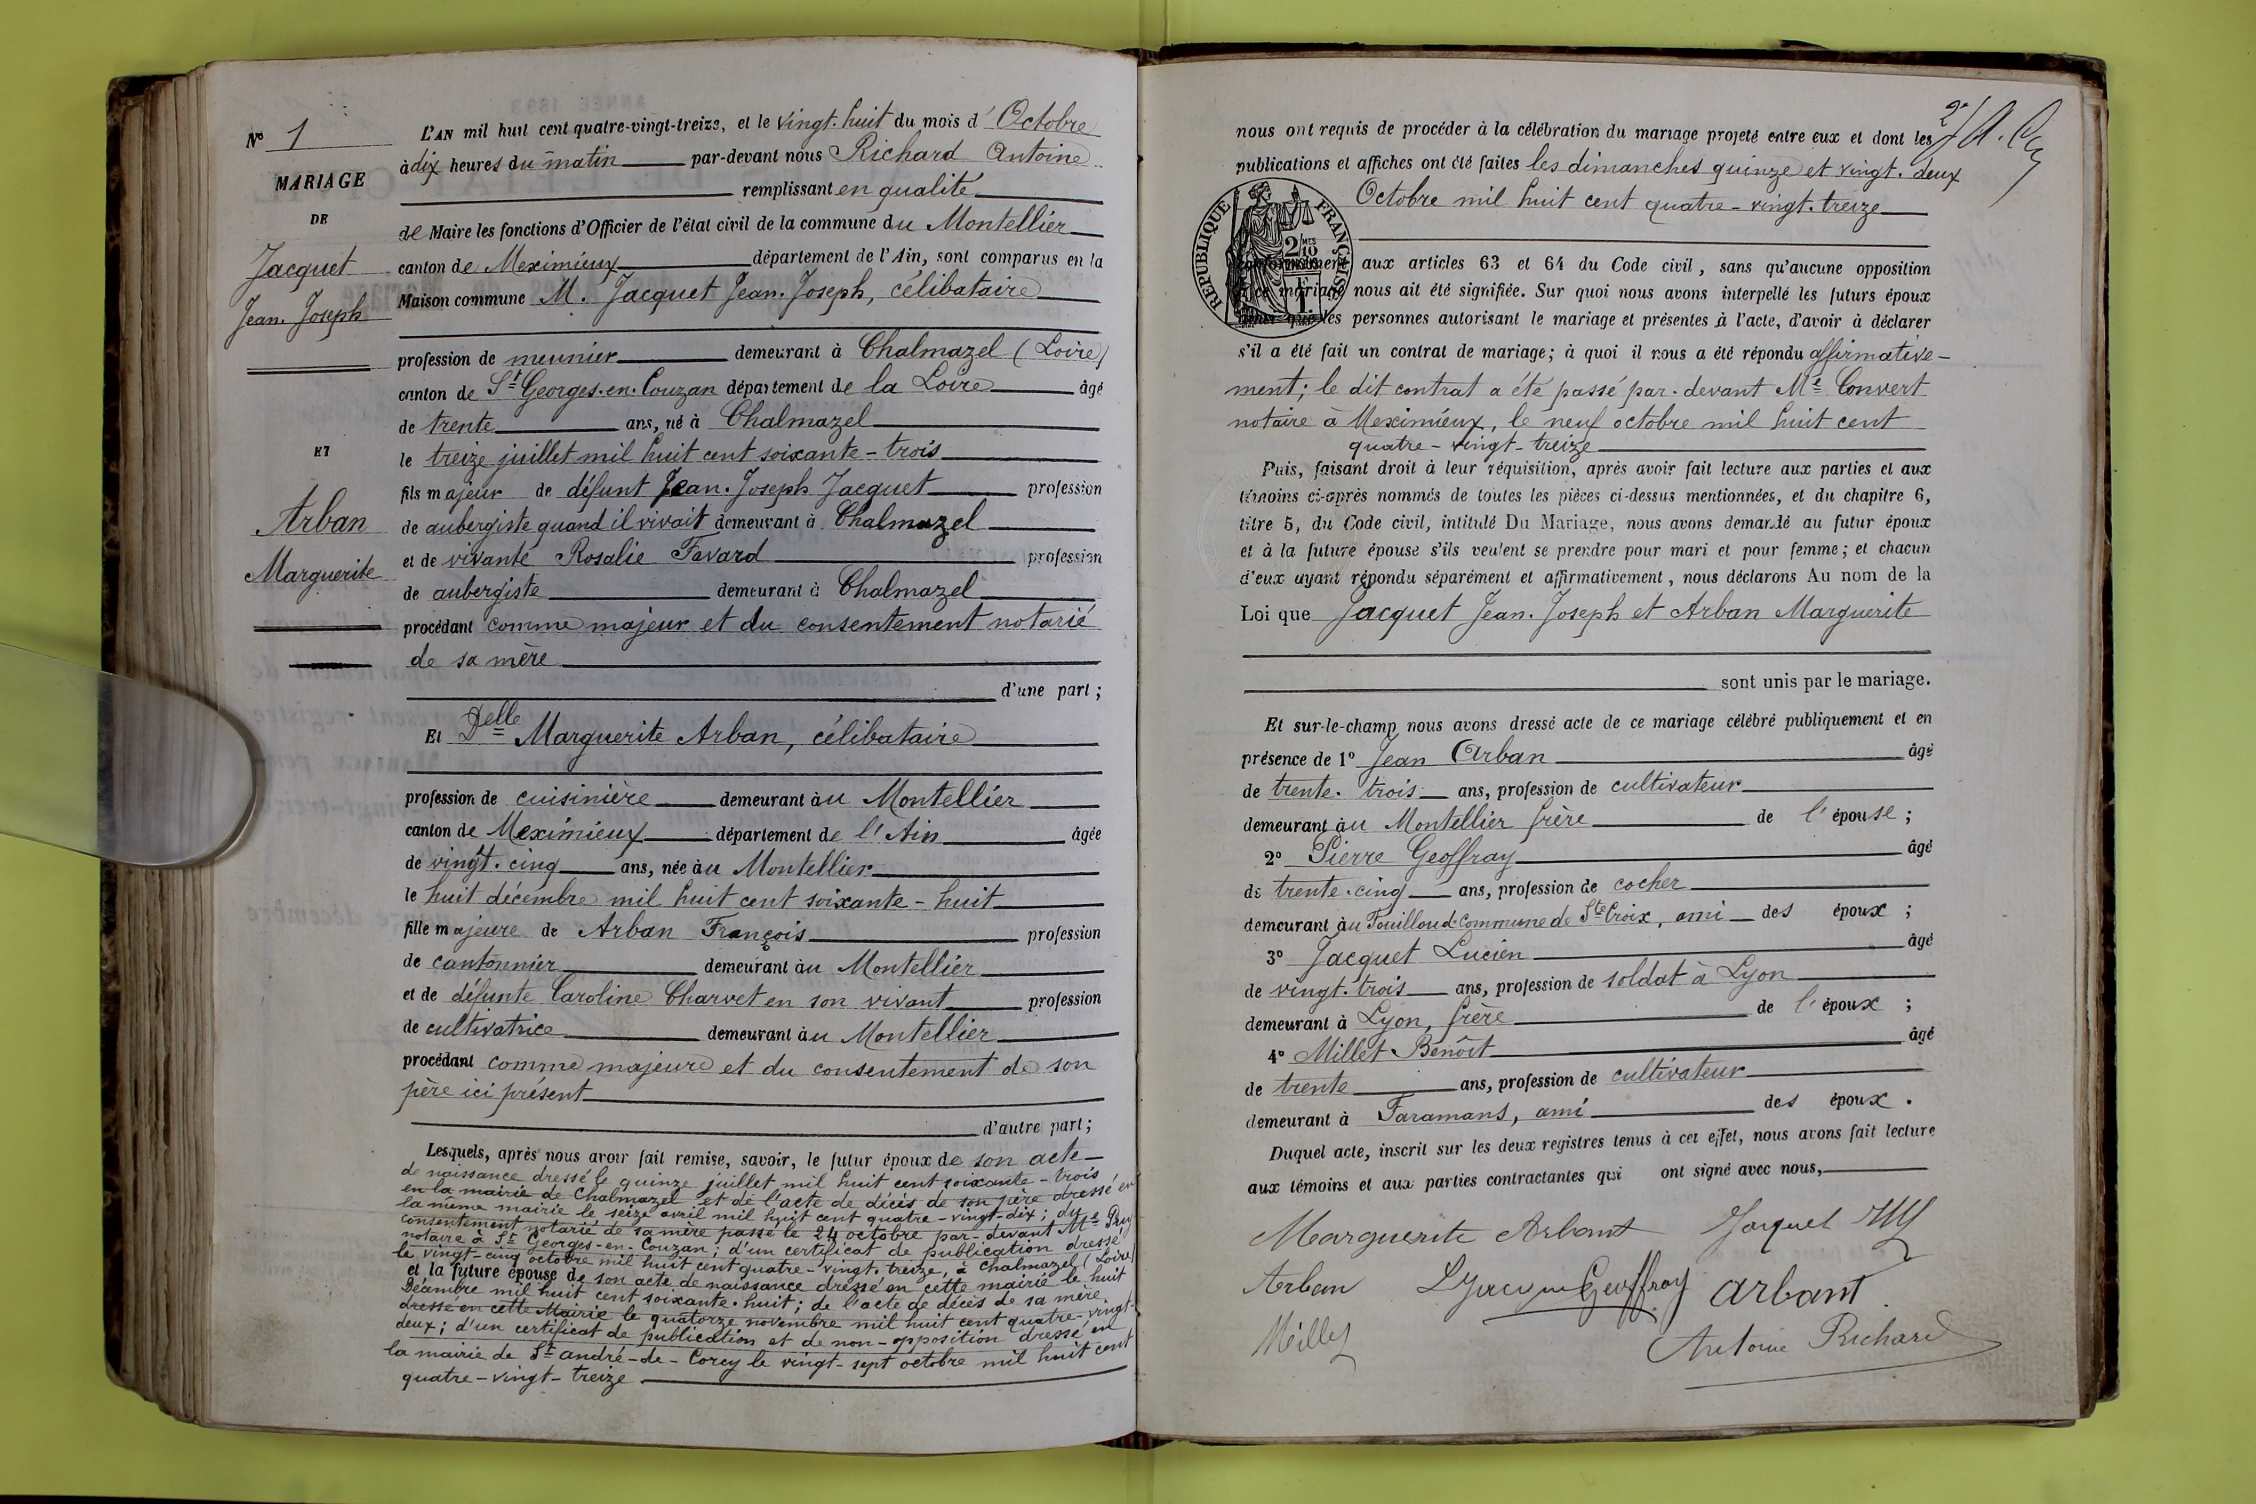 N° 1
MARIAGE
DE
Jacquet
Jean. Joseph
ET
Arban
Marguerite
L'AN mil huit cent quatre-vingt-treize, et le vingt. huit du mois d' Octobre
à dix heures du matin par-devant nous Richard Antoine
remplissant en qualité
de Maire les fonctions d'Officier de l'état civil de la commune du Montellier
canton de Meximieux département de l'Ain, sont comparus en la
Maison commune M. Jacquet Jean. Joseph, célibataire
profession de meunier demeurant à Chalmazel (Loire)
canton de St Georges. en. Couzan département de la Loire âgé
de trente ans, né à Chalmazel
le treize juillet mil huit cent soixante-trois
fils majeur de défunt Jean. Joseph Jacquet profession
de aubergiste quand il vivait demeurant à Chalmazel
et de vivante Rosalie Favard profession
de aubergiste demeurant à Chalmazel
procédant comme majeur et du consentement notarié
de sa mère
d'une part ;
Et Delle Marguerite Arban, célibataire
profession de cuisinière demeurant au Montellier
canton de Meximieux département de l'Ain âgée
de vingt. cinq ans, née au Montellier
le huit décembre mil huit cent soixante-huit
fille majeure de Arban François profession
de cantonnier demeurant au Montellier
et de défunte Caroline Charvet en son vivant profession
de cultivatrice demeurant au Montellier
procédant comme majeure et du consentement de son
père ici présent
d'autre part ;
Lesquels, après nous avoir fait remise, savoir, le futur époux de son acte
de naissance dressé le quinze juillet mil huit cent soixante-trois
en la mairie de Chalmazel et de l'acte de décès de son père dressé en
la même mairie le seize avril mil huit cent quatre-vingt-dix ; du
consentement notarié de sa mère passé le 24 octobre par-devant Me
notaire à St Georges-en-Couzan ; d'un certificat de publication dressé
le vingt-cinq octobre mil huit cent quatre-vingt. treize, à Chalmazel (Loire)
et la future épouse de son acte de naissance dressé en cette mairie le huit
Décembre mil huit cent soixante. huit ; de l'acte de décès de sa mère
dressé en cette Mairie le quatorze novembre mil huit cent quatre-vingt-
deux ; d'un certificat de publication et de non-opposition dressé en
la mairie de St andré-de-Corcy le vingt-sept octobre mil huit cent
quatre-vingt-treize
nous ont requis de procéder à la célébration du mariage projeté entre eux et dont les
publications et affiches ont été faites les dimanches quinze et vingt. deux
Octobre mil huit cent quatre-vingt. treize
RÉPUBLIQUE FRANÇAISE
conformément aux articles 63 et 64 du Code civil, sans qu'aucune opposition
à ce mariage nous ait été signifiée. Sur quoi nous avons interpellé les futurs époux
ainsi que les personnes autorisant le mariage et présentes à l'acte, d'avoir à déclarer
s'il a été fait un contrat de mariage ; à quoi il nous a été répondu affirmative-
ment ; le dit contrat a été passé par. devant Me Convert
notaire à Meximieux, le neuf octobre mil huit cent
quatre-vingt-treize
Puis, faisant droit à leur réquisition, après avoir fait lecture aux parties et aux
témoins ci-après nommés de toutes les pièces ci-dessus mentionnées, et du chapitre 6,
titre 5, du Code civil, intitulé Du Mariage, nous avons demandé au futur époux
et à la future épouse s'ils veulent se prendre pour mari et pour femme ; et chacun
d'eux ayant répondu séparément et affirmativement, nous déclarons Au nom de la
Loi que Jacquet Jean. Joseph et Arban Marguerite
sont unis par le mariage.
Et sur-le-champ nous avons dressé acte de ce mariage célébré publiquement et en
présence de 1° Jean Arban âgé
de trente. trois ans, profession de cultivateur
demeurant au Montellier frère de l'épouse ;
2° Pierre Geoffray âgé
de trente. cinq ans, profession de cocher
demeurant au Fouilloud commune de Ste Croix, ami des époux ;
3° Jacquet Lucien âgé
de vingt. trois ans, profession de soldat à Lyon
demeurant à Lyon, frère de l'époux ;
4° Millet Benoît âgé
de trente ans, profession de cultivateur
demeurant à Faramans, ami des époux.
Duquel acte, inscrit sur les deux registres tenus à cet effet, nous avons fait lecture
aux témoins et aux parties contractantes qui ont signé avec nous,
Marguerite Arbant Jacquet
Arban Geoffray arbant
Antoine Richard